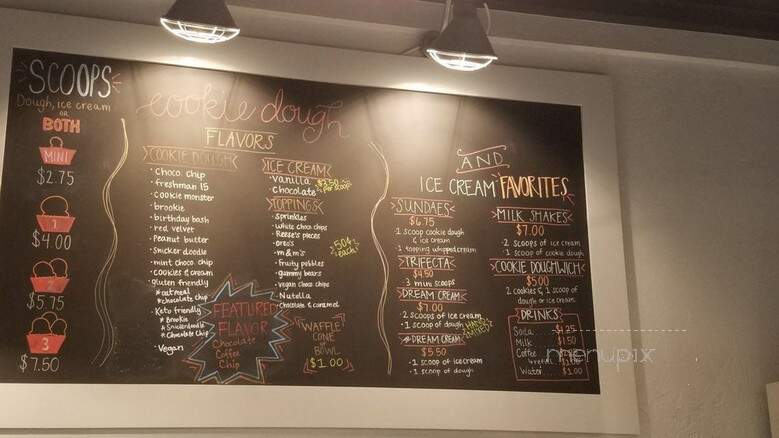 SCOOPS
Dough, ice cream
or
BOTH
MINI
$2.75
1
$4.00
2
$5.75
3
$7.50
cookie dough
FLAVORS
COOKIE DOUGH
· choco chip
· freshman 15
· cookie monster
· brookie
· birthday bash
· red velvet
· Peanut butter
· snicker doodle
· mint choco chip
· cookies & cream
· gluten friendly
* oatmeal
* chocolate chip
· Keto friendly
* Brookie
* Snickerdoodle
* Chocolate Chip
· Vegan
ICE CREAM
· Vanilla
· chocolate
per scoop
TOPPINGS
· sprinkles
· white choco chips
· Reese's pieces
· oreo's
· m & m's
· Fruity pebbles
· gummy bears
· vegan choco chips
· Nutella
· chocolate & caramel
50¢
each
FEATURED
FLAVOR
Chocolate
Coffee
Chip
WAFFLE
CONE
BOWL
$1.00
AND
ICE CREAM FAVORITES
SUNDAES
$6.75
1 scoop cookie dough
& ice cream
1 topping whipped cream
TRIFECTA
$4.50
· 3 mini scoops
DREAM CREAM
$7.00
· 2 scoops of ice cream
· 1 scoop of dough
DREAM CREAM
$5.50
· 1 scoop of ice cream
· 1 scoop of dough
MILK SHAKES
$7.00
· 2 scoops of ice cream
· 1 scoop of cookie dough
COOKIE DOUGHWICH
$5.00
2 cookies & 1 scoop of
dough or ice cream
DRINKS
Soda $1.25
Milk $1.50
Coffee
Water $1.00
menupix